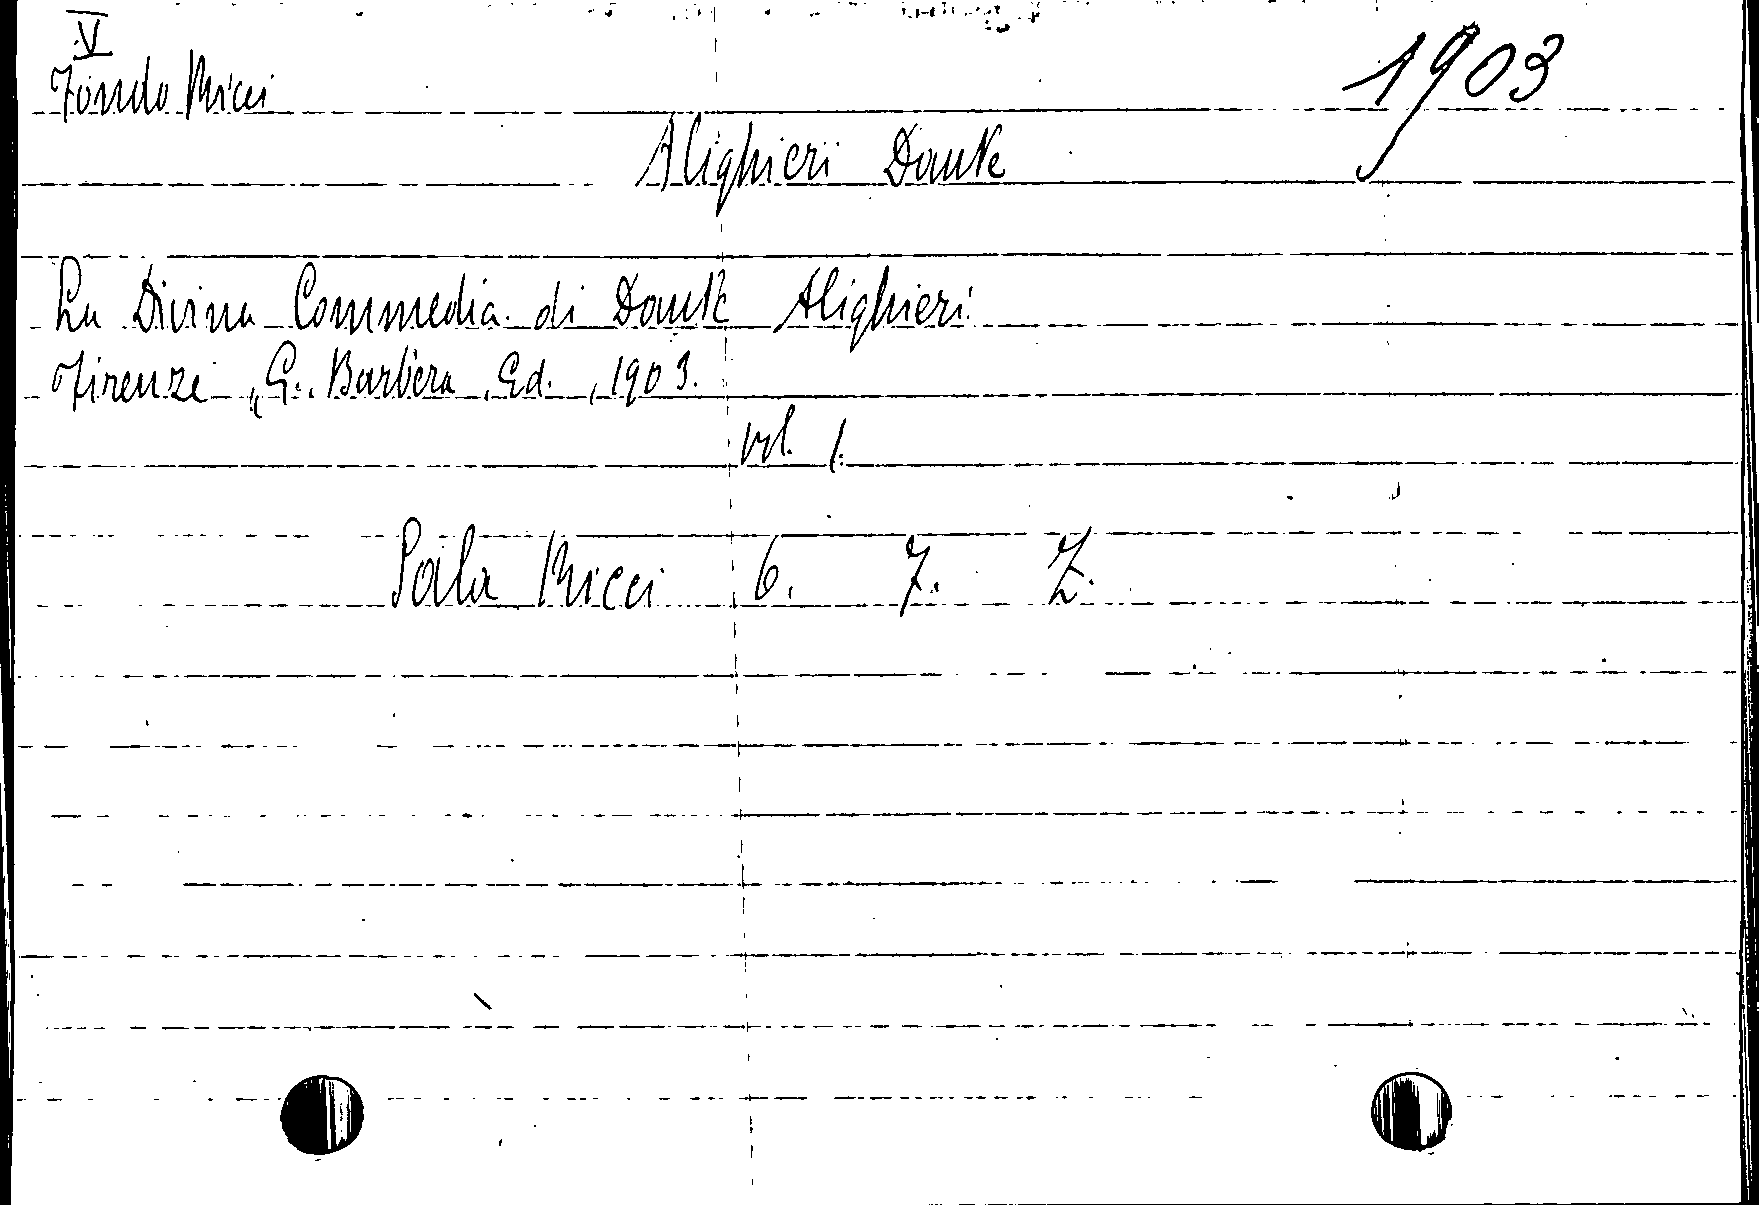 V
Fondo Ricci
1903
Alighieri Dante
La Divina Commedia di Dante Alighieri
Firenze, G. Barbèra, Ed., 1903.
vol. 1.
Sala Ricci 6. 7. Z.